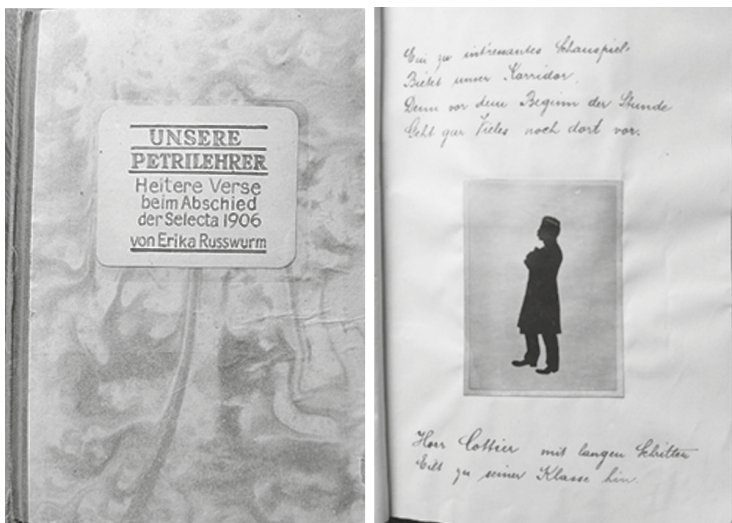 UNSERE
PETRILEHRER
Heitere Verse
beim Abschied
der Selecta 1906
von Erika Russwurm
Ein zu intressantes Schauspiel
Bietet unser Korridor.
Denn vor dem Beginn der Stunde
Geht gar Vieles noch dort vor.
Herr Cottier mit langen Schritten
Eilt zu seiner Klasse hin